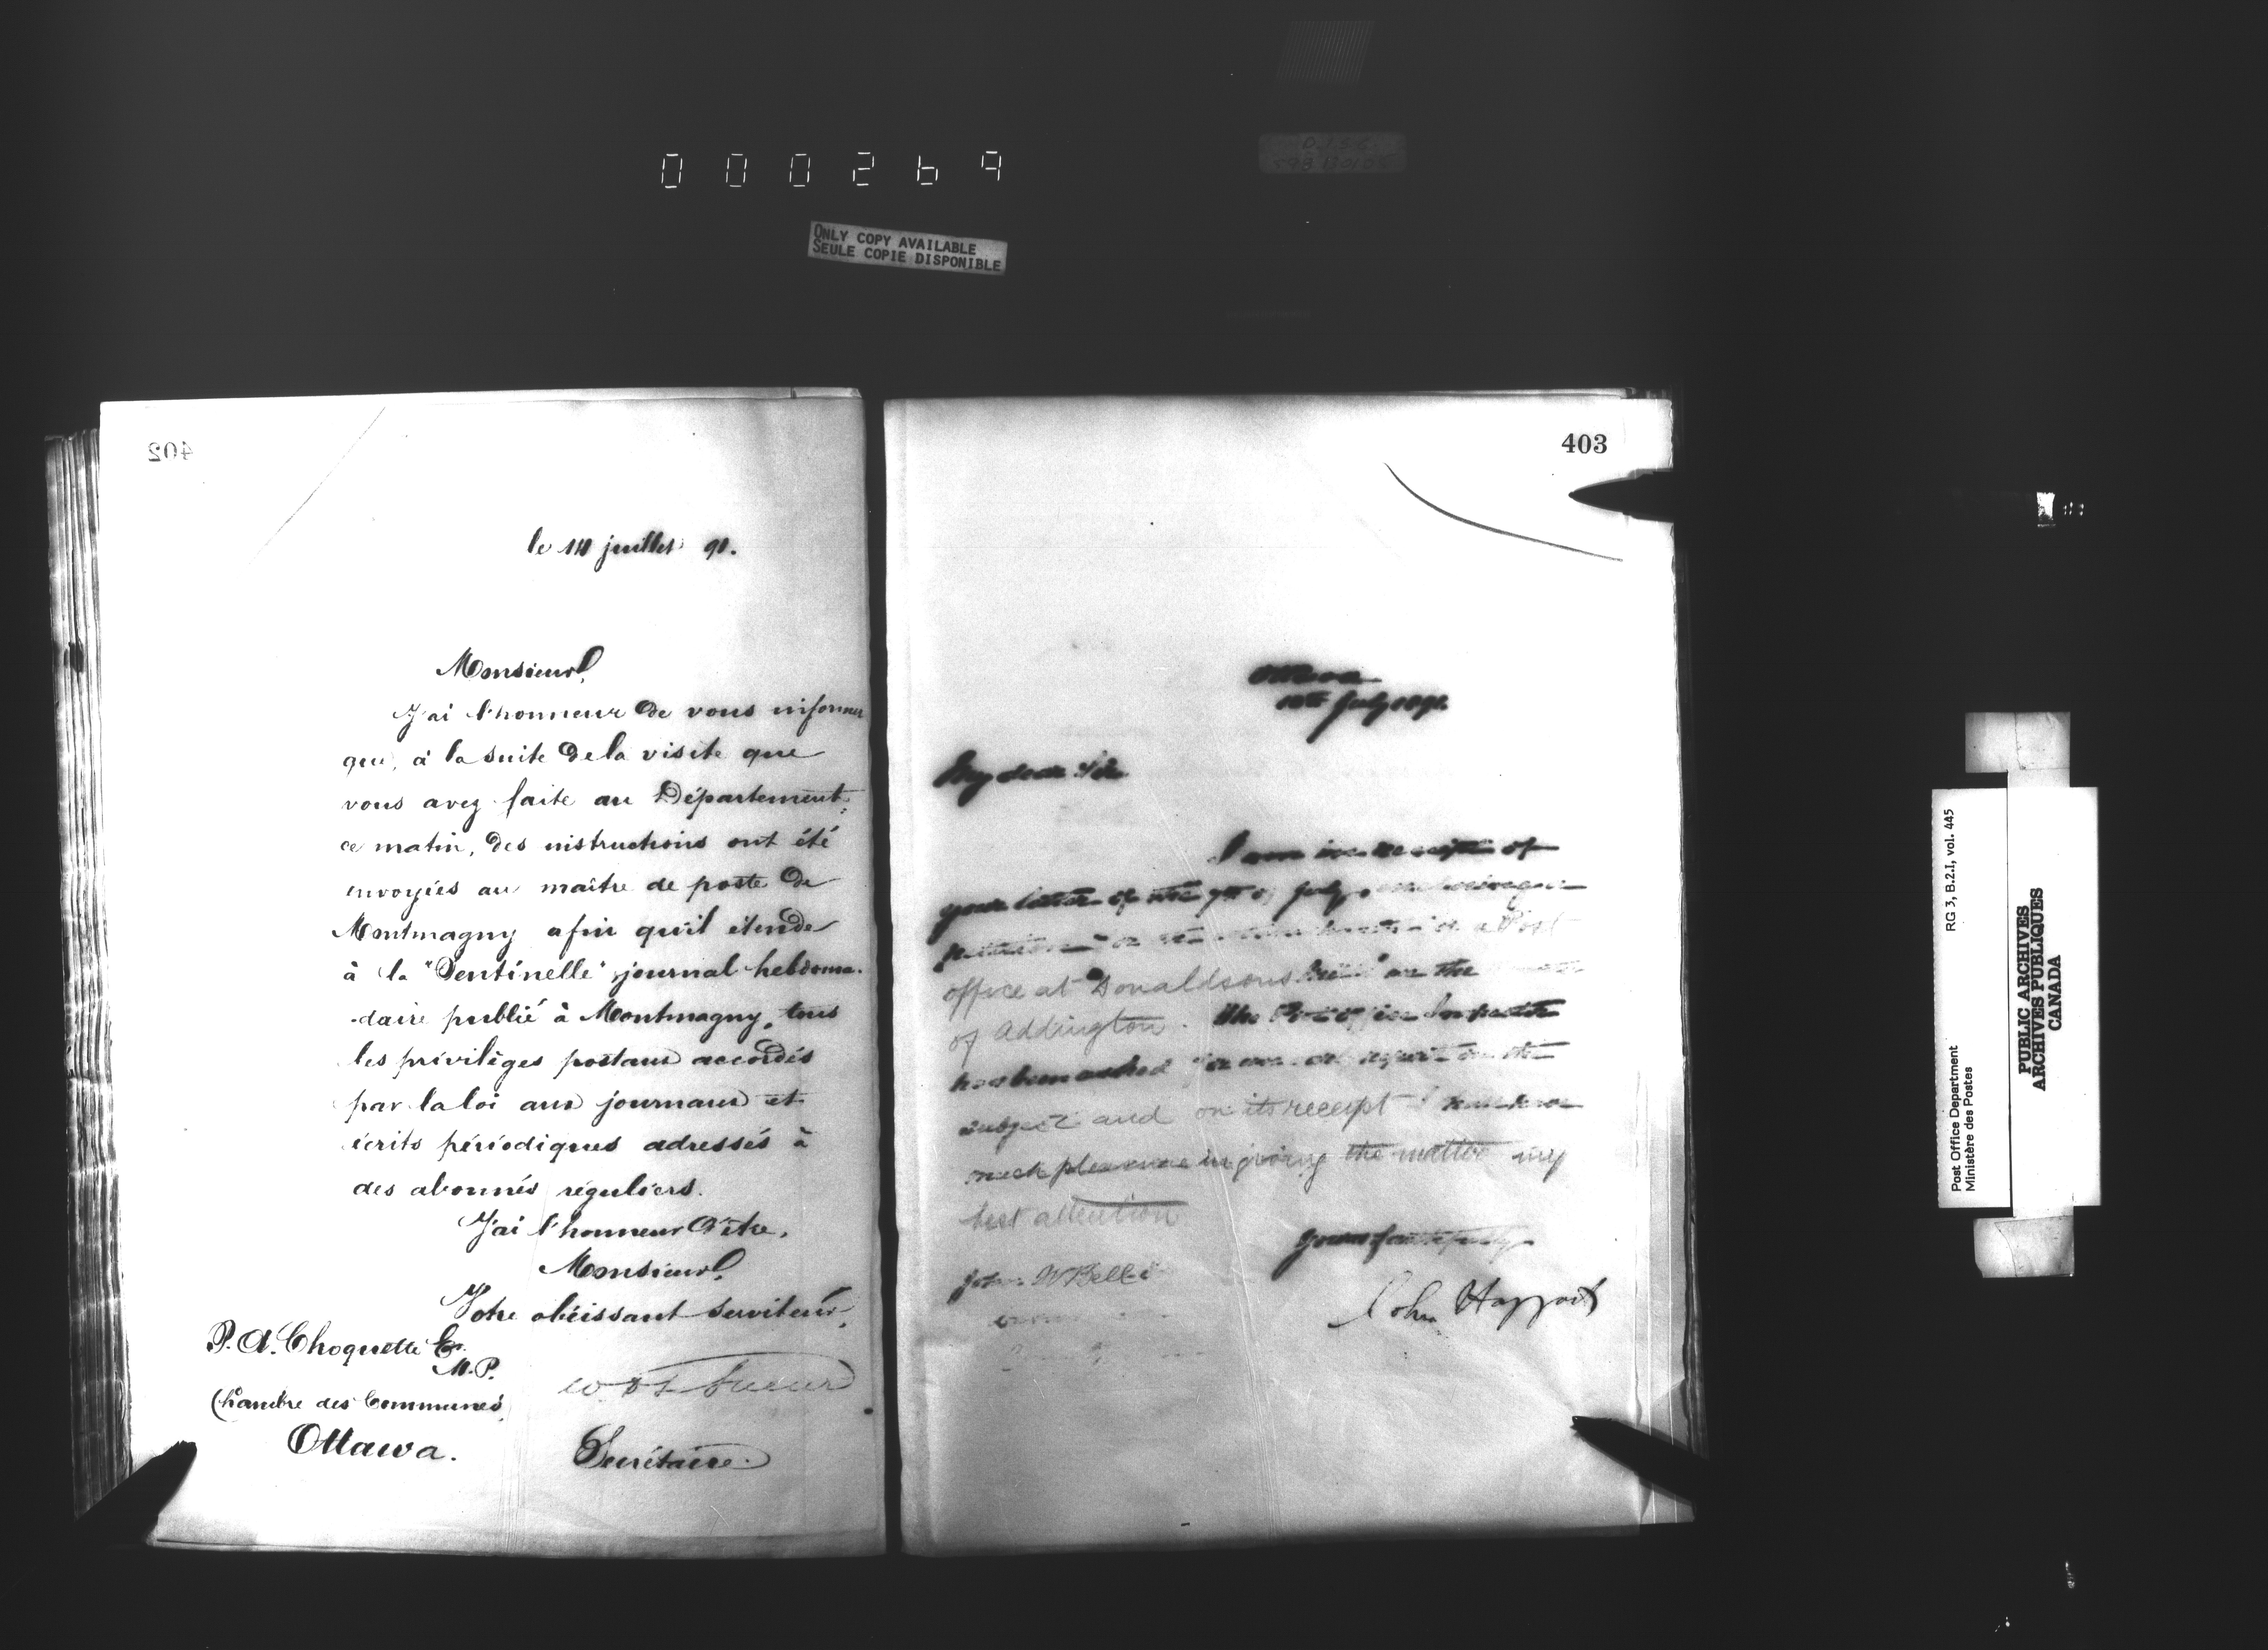 000269
ONLY COPY AVAILABLE
SEULE COPIE DISPONIBLE
402
le 10 juillet 91.
Monsieur,
J'ai l'honneur de vous informer
que, à la suite de la visite que
vous avez faite au Département
ce matin, des instructions ont été
envoyées au maître de poste de
Montmagny afin qu'il étende
à la "Sentinelle" journal hebdoma-
-daire publié à Montmagny, tous
les privilèges postaux accordés
par la loi aux journaux et
écrits périodiques adressés à
des abonnés réguliers.
J'ai l'honneur d'être,
Monsieur,
Votre obéissant serviteur,
P. A. Choquette Er.
M.P.
Chambre des Communes
Ottawa.
Secrétaire.
403
Ottawa
10th July 1891.
My dear Sir
I am in receipt of
your letter of the 7th of July, enclosing a
petition for the establishment of a Post
office at Donaldsons Mills in the
of Addington. The Post office Inspector
has been asked for an report on the
subject and on its receipt I will have
much pleasure in giving the matter my
best attention
Yours faithfully
John W Bell
John Haggart
Post Office Department
Ministère des Postes
RG 3, B.2.I, vol. 445
PUBLIC ARCHIVES
ARCHIVES PUBLIQUES
CANADA